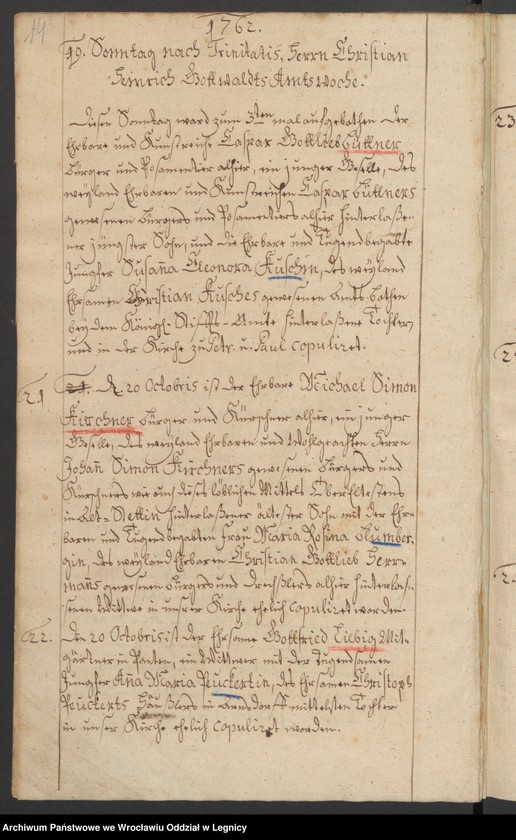 14
1762.
19. Sonntag nach Trinitatis, Herrn Christian
Heinrich Gottwaldts Amts woche.
Diesen Sonntag ward zum 3ten mal aufgebothen der
Ehrbare und Kunstreiche Caspar Gottlieb Büttner
Bürger und Posamentier alhier, ein junger Geselle, des
weyland Ehrbaren und Kunstreichen Caspar Büttners
gewesenen Bürgers und Posamentiers alhier hinterlaße-
ner jüngster Sohn, und die Ehrbare und Tugendbegabte
Jungfer Susaña Eleonora Kuschin, des weyland
Ehrsamen Christian Kusches gewesenen Amts-bothen
bey dem Königl. Stiffts-Amte hinterlaßene Tochter,
und in der Kirche zu Petr. u. Paul copuliret.
21 21. D. 20 Octobris ist der Ehrbare Michael Simon
Kirchner Bürger und Kürschner alhier, ein junger
Geselle, des weyland Ehrbaren und Wohlgeachten Herrn
Johañ Simon Kirchners gewesenen Bürgers und
Kürschners wie auch dieses löblichen Mittels Oberältestens
in Alt-Stettin hinterlaßener ältester Sohn mit der Ehr-
baren und Tugendbegabten Frau Maria Rosina Blumber-
gin, des weyland Ehrbaren Christian Gottlieb Herr-
mañs gewesenen Bürgers und Drechßlers alhier hinterlaß-
senen Wittwe in unsrer Kirche ehelich copuliret worden.
22. Den 20 Octobris ist der Ehrsame Gottfried Liebig Mit-
gärtner in Panten, ein Wittwer mit der Tugendsamen
Jungfer Aña Maria Peuckertin, des Ehrsamen Christoph
Peuckerts Häußlers in Arnsdorff mittelsten Tochter
in unser Kirche ehelich copuliret worden.
23
2
2
Archiwum Państwowe we Wrocławiu Oddział w Legnicy